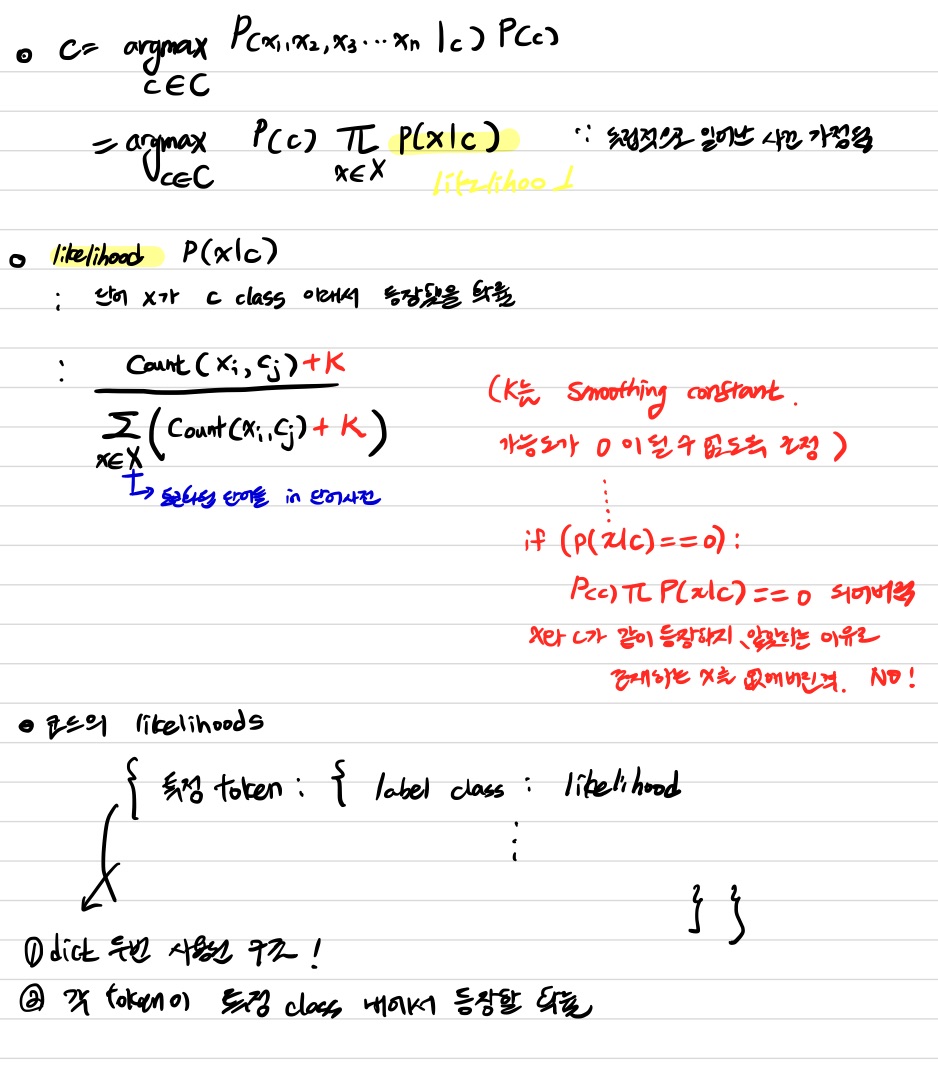 c = argmax P(x₁, x₂, x₃ ··· xₙ | c) P(c)
c∈C
= argmax P(c) π P(x|c) ∵ 독립적으로 일어난 사건 가정됨
c∈C x∈X
likelihood
likelihood P(x|c)
; 단어 x가 c class 아래서 등장했을 확률
: Count(xᵢ, cⱼ) + K
Σ (Count(xᵢ, cⱼ) + K)
x∈X
↳ 토큰화된 단어들 in 단어사전
(K는 Smoothing constant.
가능도가 0 이 될 수 없도록 조정)
if (p(x|c) == 0) :
P(c) π P(x|c) == 0 되어버림
x와 c가 같이 등장하지 않았다는 이유로
존재하는 x를 없애버린격. NO!
코드의 likelihoods
{ 특정 token : { label class : likelihood
⋮
} }
① dict 두번 사용한 구조!
② 각 token이 특정 class 내에서 등장할 확률